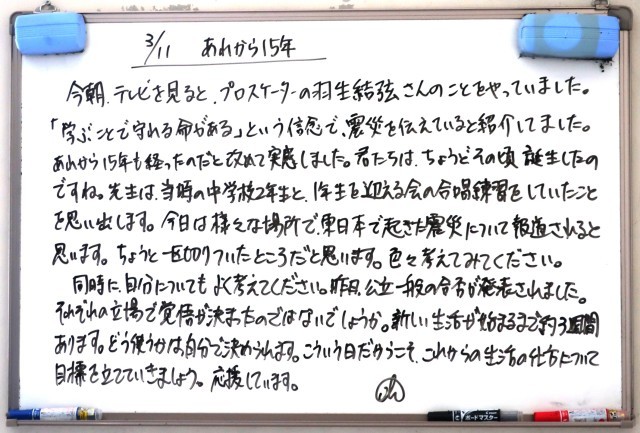 3/11 あれから15年
今朝、テレビを見ると、プロスケーターの羽生結弦さんのことをやっていました。
「学ぶことで守れる命がある」という信念で、震災を伝えていると紹介してました。
あれから15年も経ったのだと改めて実感しました。君たちは、ちょうどその頃誕生したの
ですね。先生は、当時の中学校2年生と、1年生を迎える会の合唱練習をしていたこと
を思い出します。今日は様々な場所で、東日本で起きた震災について報道されると
思います。ちょうど一区切りついたところだと思います。色々考えてみてください。
同時に、自分についてもよく考えてください。昨日、公立一般の合否が発表されました。
それぞれの立場で覚悟が決まったのではないでしょうか。新しい生活が始まるまで約3週間
あります。どう使うかは自分で決められます。こういう日だからこそ、これからの生活の仕方について
目標を立てていきましょう。応援しています。
ボードマスター